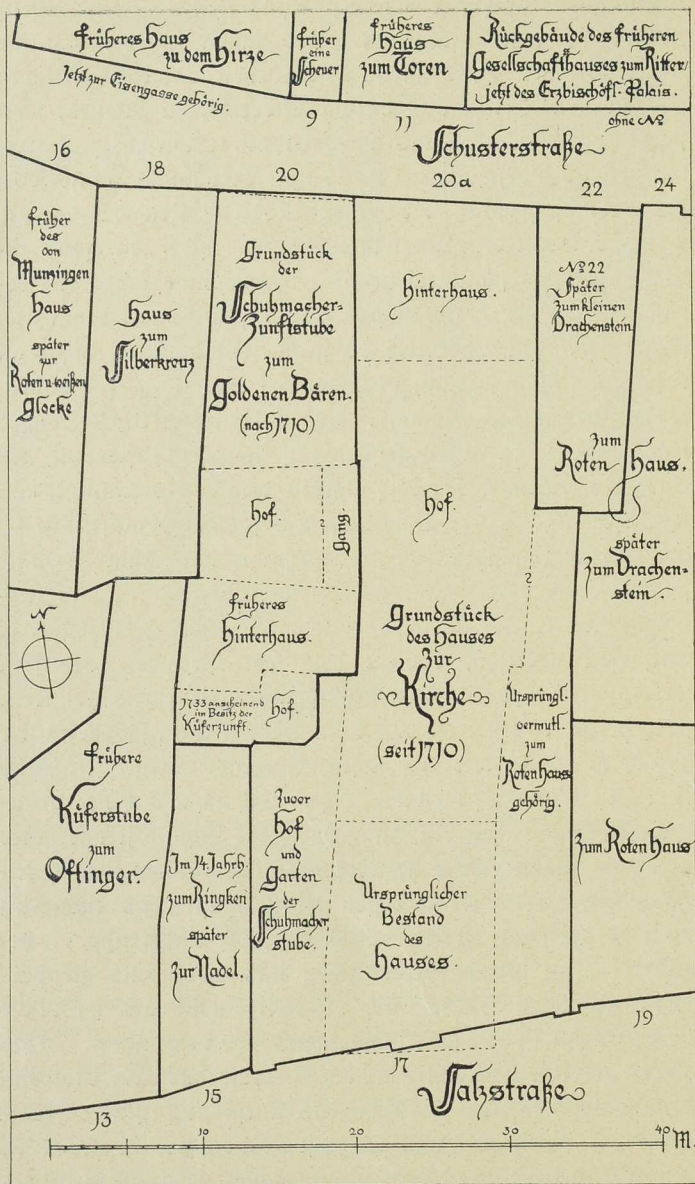 früheres Haus
zu dem Hirze
Jetzt zur Eisengasse gehörig.
früher
eine
Scheuer
früheres
Haus
zum Toren
Rückgebäude des früheren
Gesellschaftshauses zum Ritter,
jetzt des Erzbischöfl. Palais.
9
11
ohne No
Schusterstraße
16
18
20
20a
22
24
früher
des
von
Munzingen
Haus
später
zur
Roten u. weißen
Glocke
Haus
zum
Silberkreuz
Grundstück
der
Schuhmacher-
Zunftstube
zum
Goldenen Bären.
(nach 1710)
Hinterhaus.
No 22
Später
zum kleinen
Drachenstein
zum
Roten Haus.
Hof.
2
Gang.
Hof.
2
später
zum Drachen=
stein.
N
früheres
Hinterhaus.
1733 anscheinend
im Besitz der
Küferzunft.
Hof.
Grundstück
des Hauses
zur
Kirche
(seit 1710)
Ursprüngl.
vermutl.
zum
Roten Haus
gehörig.
frühere
Küferstube
zum
Oftinger.
Im 14. Jahrh.
zum Ringken
später
zur Nadel.
Zuvor
Hof
und
Garten
der
Schuhmacher
stube.
Ursprünglicher
Bestand
des
Hauses.
zum Roten Haus
13
15
17
19
Salzstraße
10
20
30
40 M.